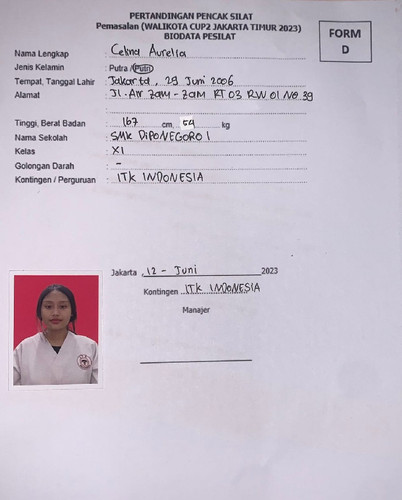 PERTANDINGAN PENCAK SILAT
Pemasalan (WALIKOTA CUP2 JAKARTA TIMUR 2023)
BIODATA PESILAT
FORM
D
Nama Lengkap : Celma Aurelia
Jenis Kelamin : Putra / Putri
Tempat, Tanggal Lahir : Jakarta, 29 Juni 2006
Alamat : Jl. Air Zam - Zam RT 03 RW 01 No. 39
Tinggi, Berat Badan : 167 cm, 54 kg
Nama Sekolah : SMK DIPONEGORO 1
Kelas : XI
Golongan Darah : -
Kontingen / Perguruan : ITK INDONESIA
Jakarta , 12 - Juni 2023
Kontingen ITK INDONESIA
Manajer